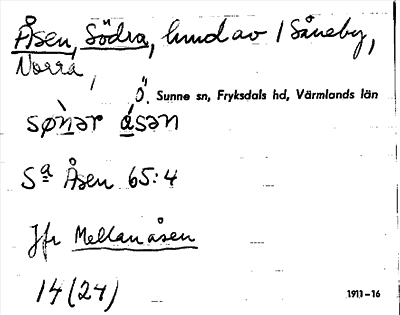 Åsen, Södra, hmd av / Såneby,
Norra,
Ö. Sunne sn, Fryksdals hd, Värmlands län
sønər åsən
Sa Åsen 65:4
Jfr Mellanåsen
14 (24)
1911-16